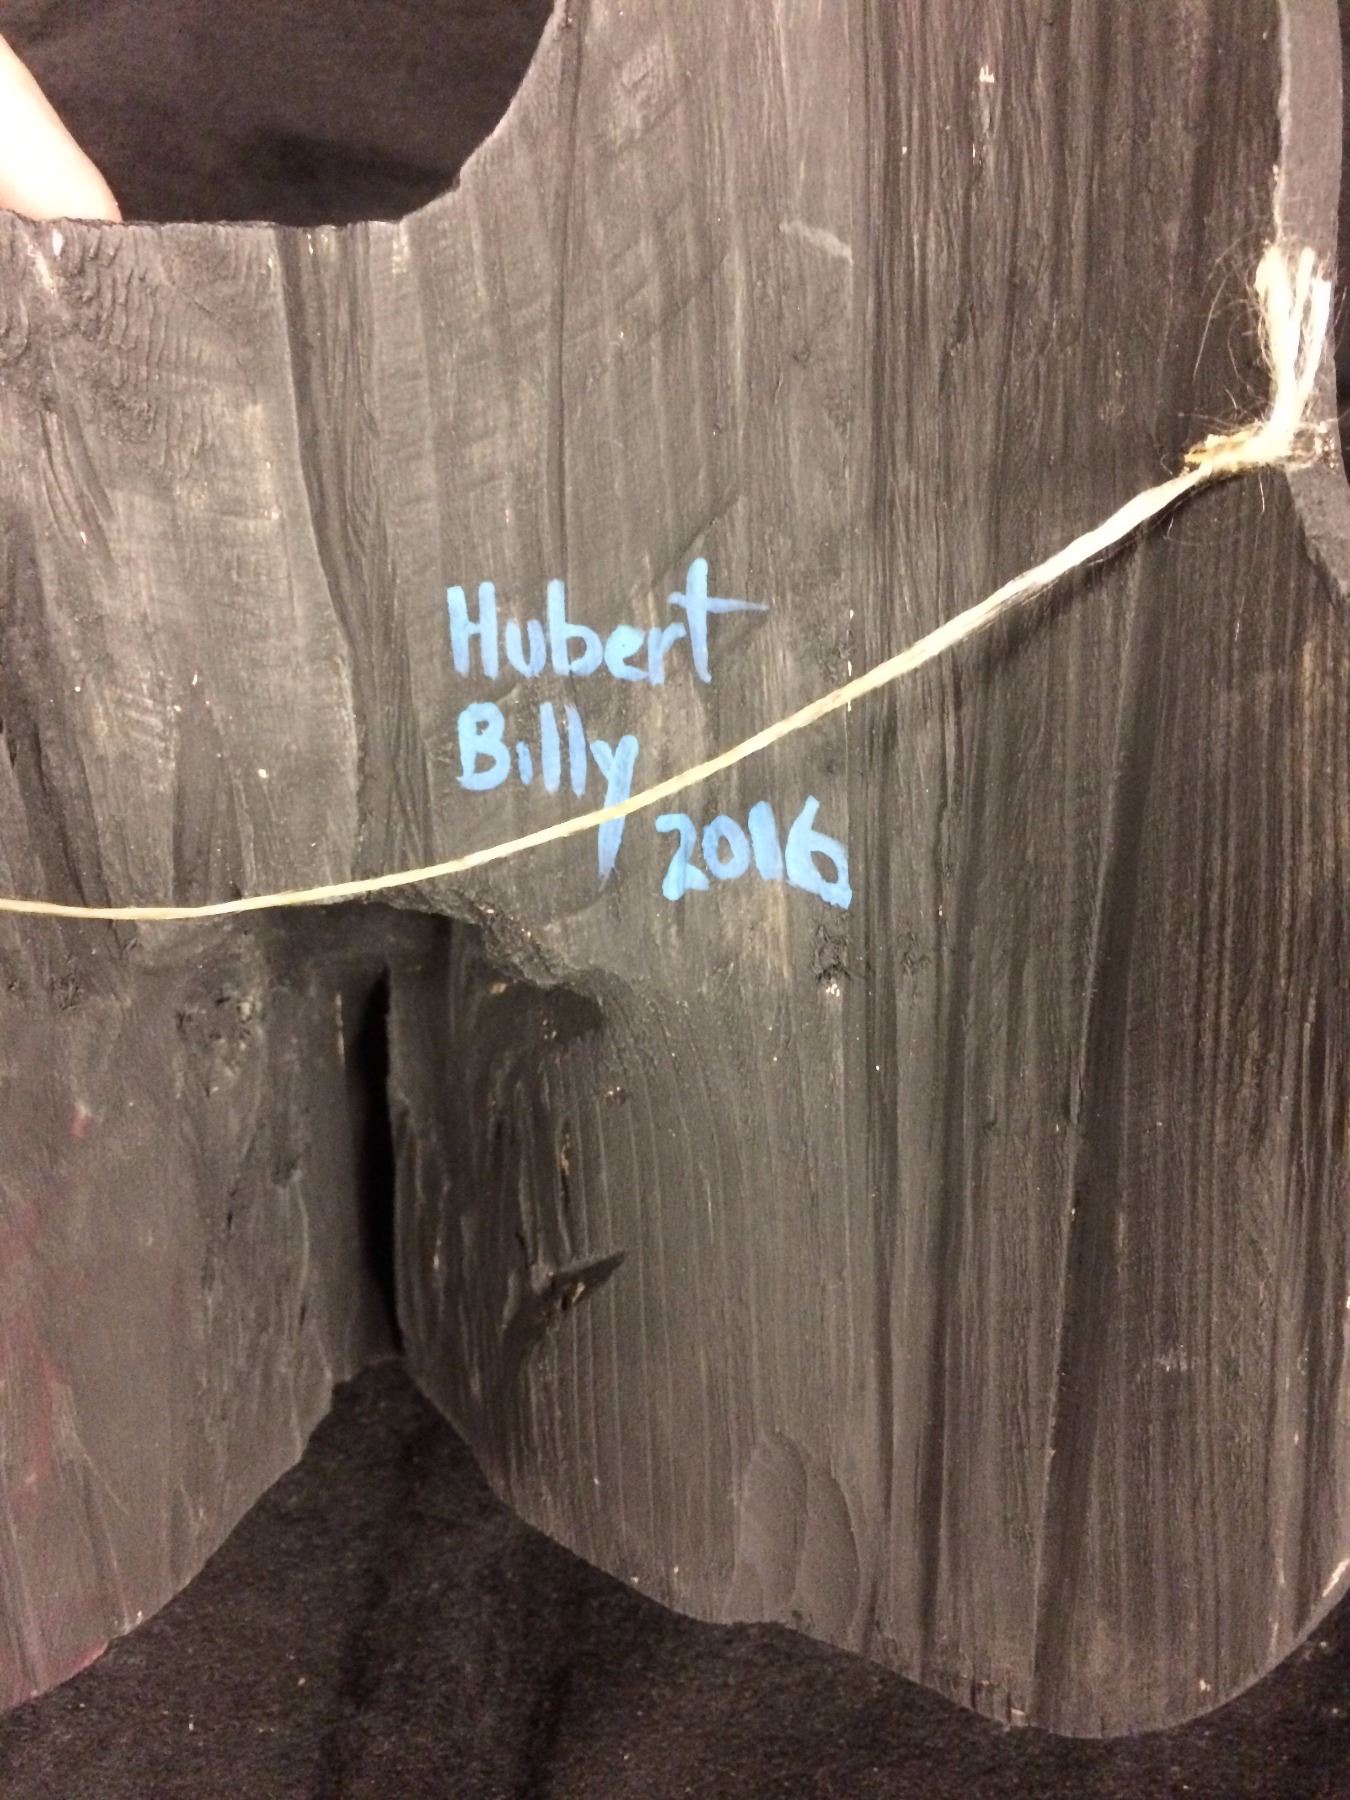 Hubert
Billy
2016